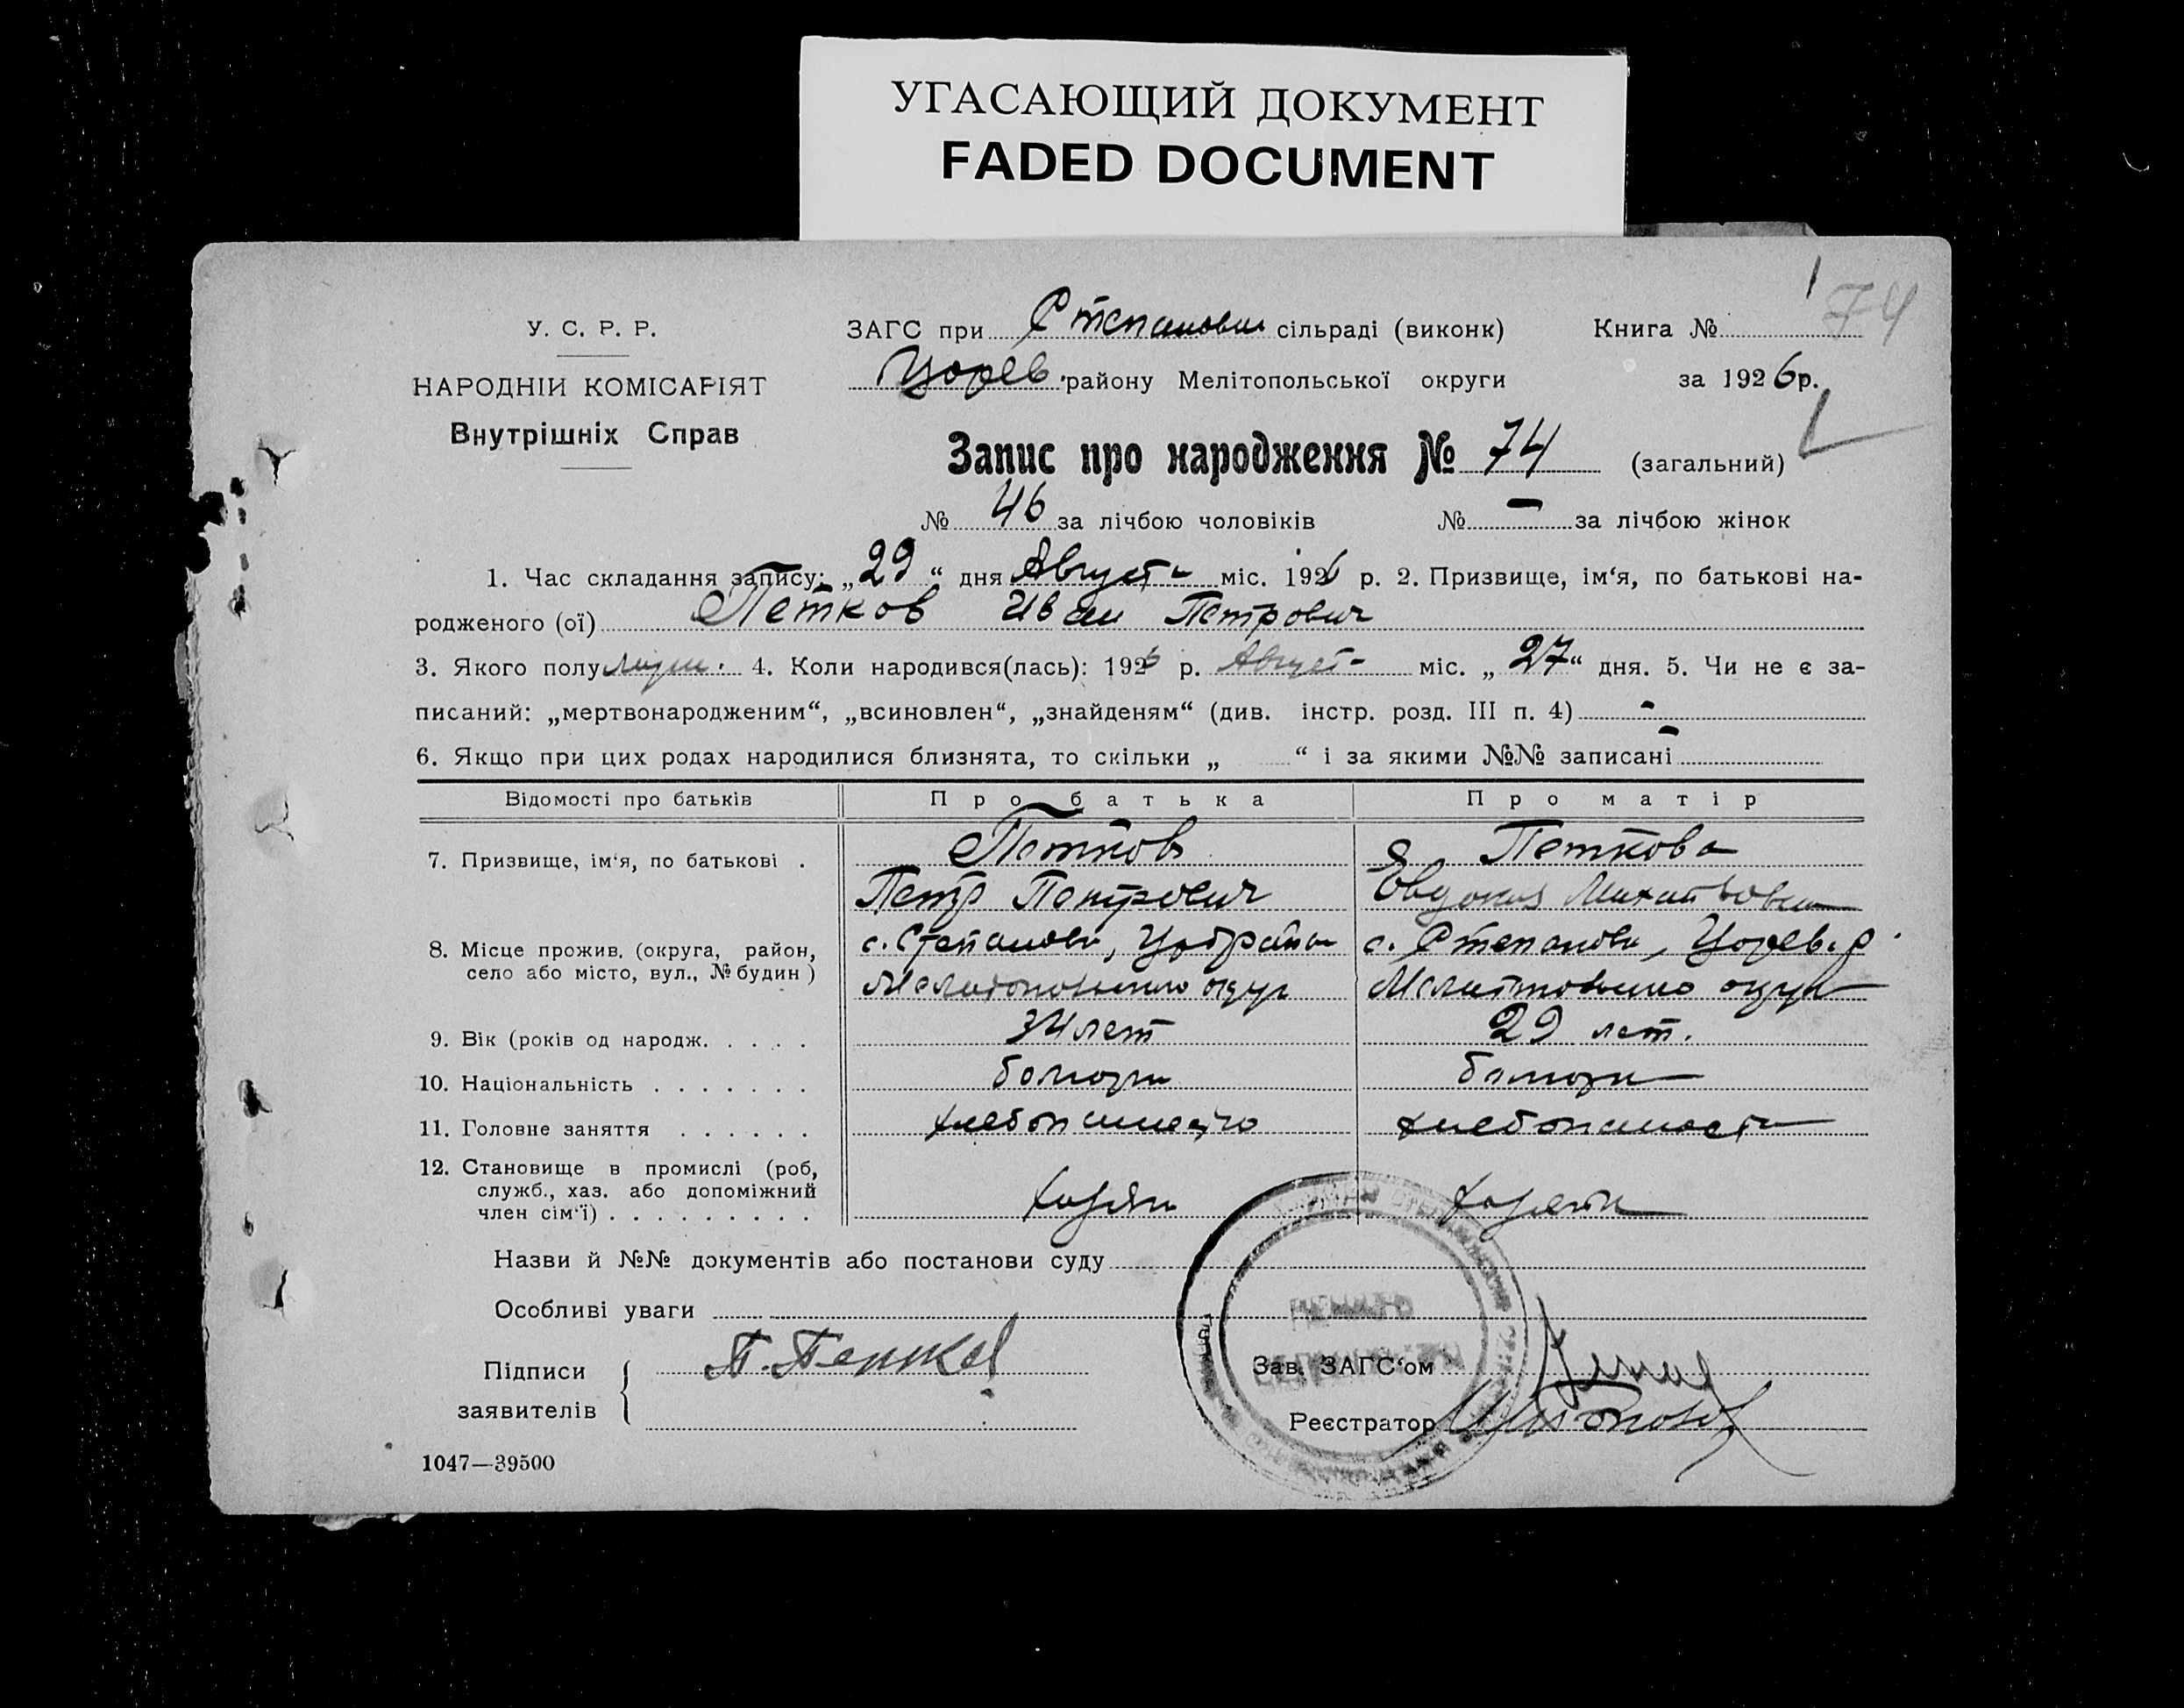 УГАСАЮЩИЙ ДОКУМЕНТ
FADED DOCUMENT
74
У. С. Р. Р.
ЗАГС при Степановк сільраді (виконк)
Книга №
НАРОДНІЙ КОМІСАРІЯТ
Цорев. району Мелітопольської округи
за 1926 р.
Внутрішніх Справ
Запис про народження № 74 (загальний)
№ 46 за лічбою чоловіків № – за лічбою жінок
1. Час складання запису: „29“ дня Август- міс. 1926 р. 2. Призвище, ім‘я, по батькові на-
родженого (ої) Петков Иван Петрович
3. Якого полу 4. Коли народився(лась): 1926 р. Август- міс. „27“ дня. 5. Чи не є за-
писаний: „мертвонародженим“, „всиновлен“, „знайденям“ (див. інстр. розд. III п. 4) -
6. Якщо при цих родах народилися близнята, то скільки „ “ і за якими №№ записані -
Відомості про батьків Про батька Про матір
7. Призвище, ім‘я, по батькові . Петков Петкова
Петр Петрович Евдокия Михайловна
8. Місце прожив. (округа, район, с. Степановк, с. Степановк, Цорев. р.
село або місто, вул., № будин ) округ округ
9. Вік (років од народж. . . . . 34 лет 29 лет.
10. Національність . . . . . . . болгарин болгарк
11. Головне заняття . . . . . . хлебопашество хлебопашест
12. Становище в промислі (роб,
служб., хаз. або допоміжний хозяин хозяйка
член сім‘ї) . . . . . . . . .
Назви й №№ документів або постанови суду
Особливі уваги
Підписи П. Петков Зав. ЗАГС‘ом
заявителів Реєстратор
1047—39500